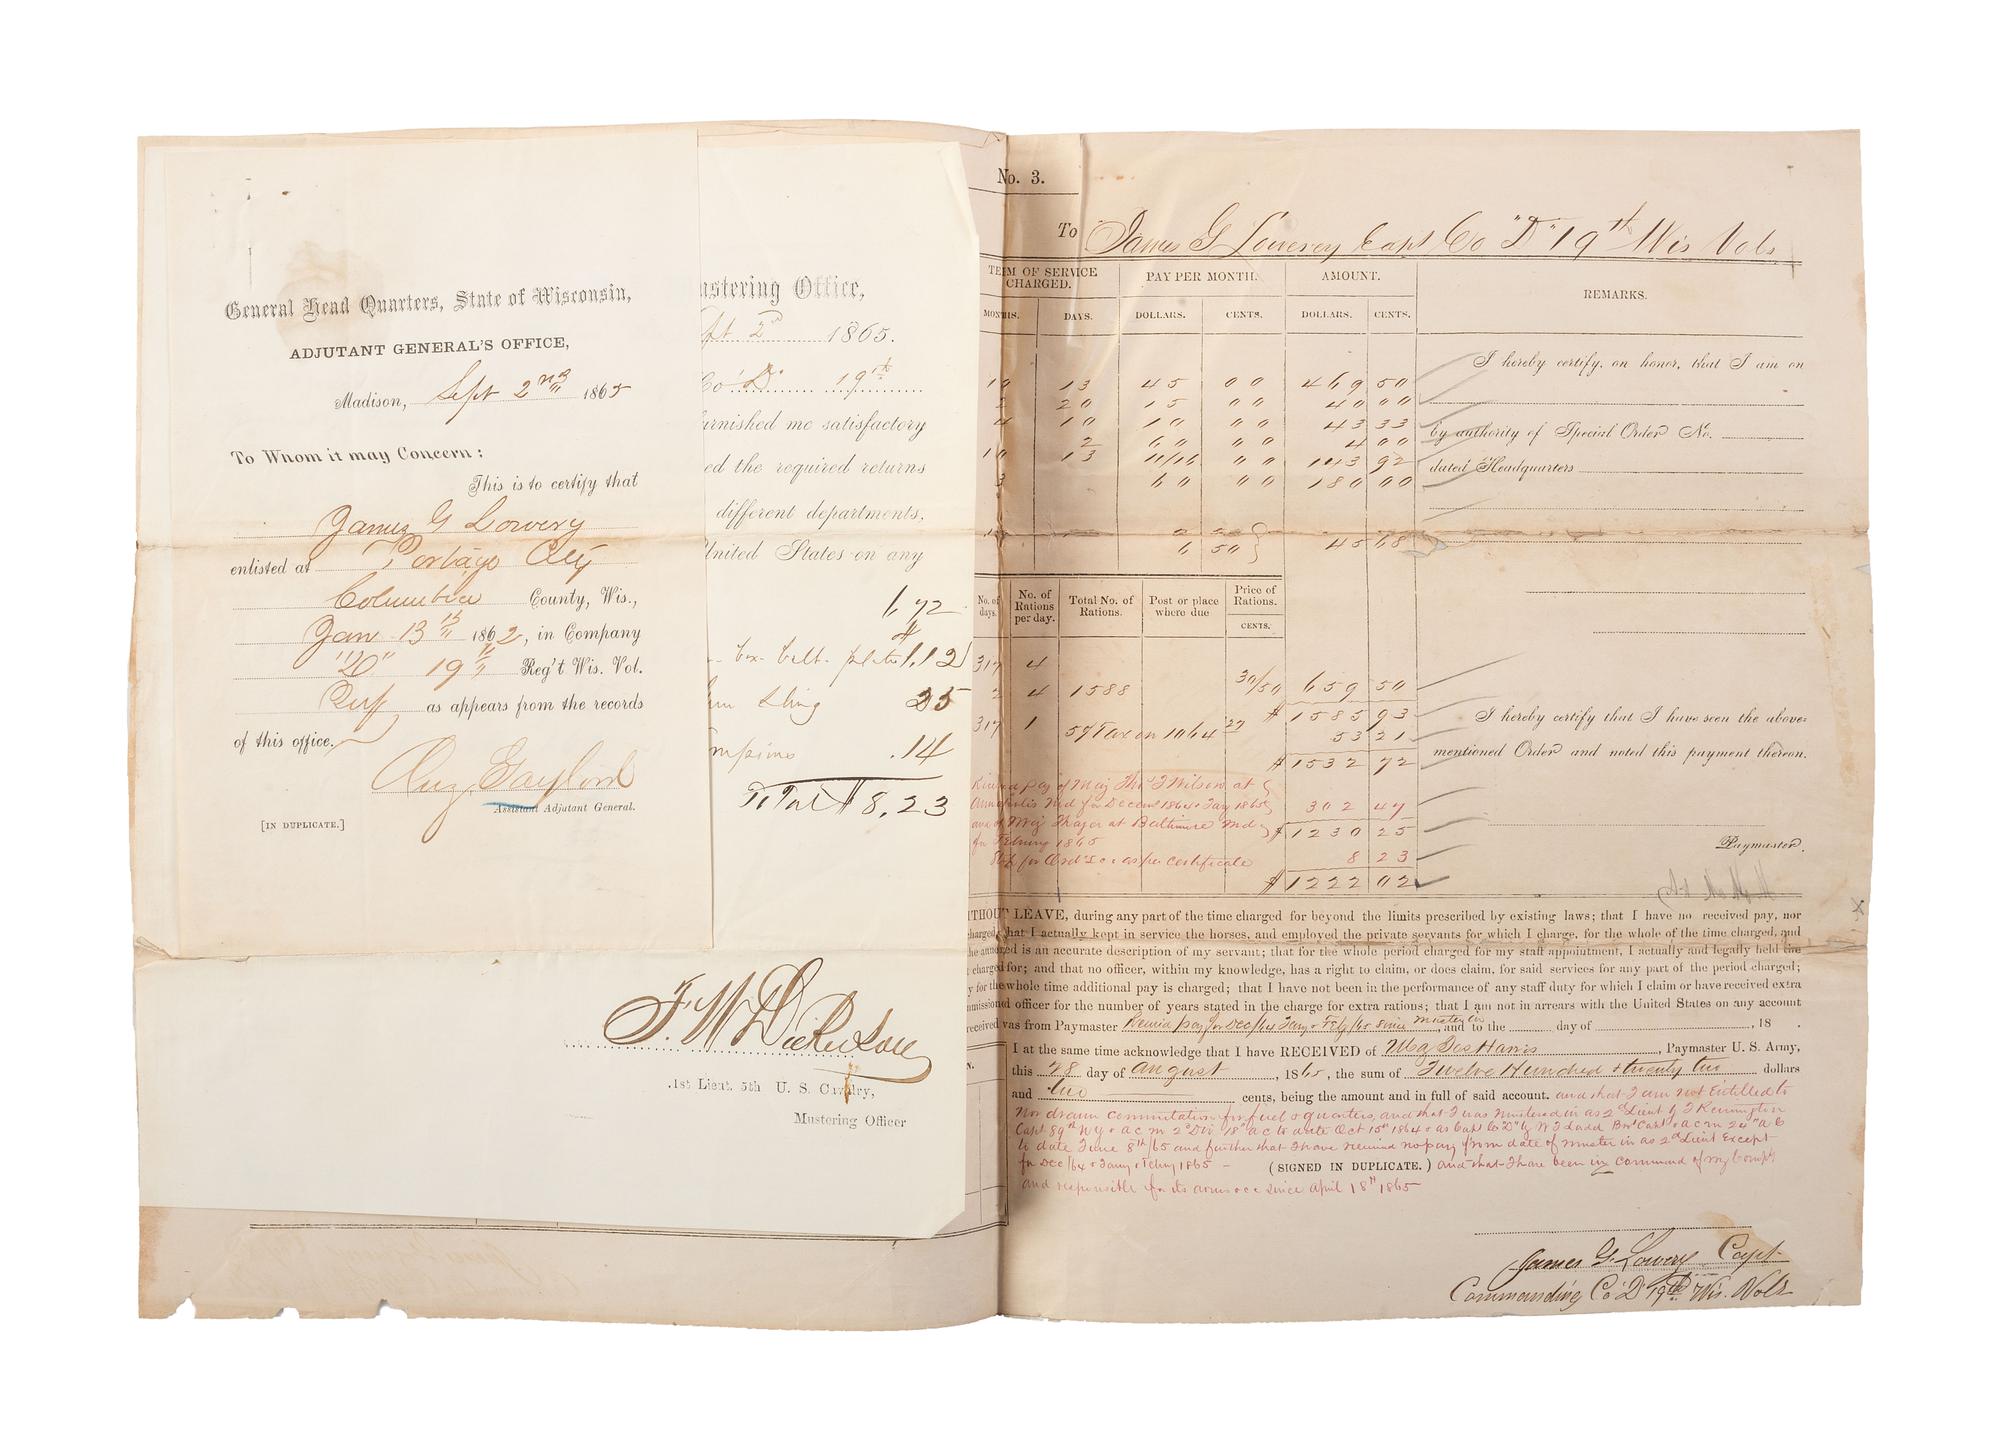 General Head Quarters, State of Wisconsin,
ADJUTANT GENERAL'S OFFICE,
Madison, Sept 2nd 1865
To Whom it may Concern:
This is to certify that
James G Lowery
enlisted at Portage City
Columbia County, Wis.,
Jan 13th 1862, in Company
"D" 19th Reg't Wis. Vol.
as appears from the records
of this office.
Aug Gaylord
Assistant Adjutant General.
[IN DUPLICATE.]
ustering Office,
pt 2d 1865.
Co "D" 19th
urnished me satisfactory
ed the required returns
different departments.
United States on any
6 72
box belt plate 1.12
un sling 25
.14
Total $8,23
F. W. Dickerson
1st Lieut. 5th U. S. Cavalry,
Mustering Officer
No. 3.
To James G Lowery Capt Co "D" 19th Wis Vols
TERM OF SERVICE CHARGED. PAY PER MONTH. AMOUNT. REMARKS.
MONTHS. DAYS. DOLLARS. CENTS. DOLLARS. CENTS.
I hereby certify, on honor, that I am on
10 13 45 00 469 50
2 20 15 " 40 00
4 10 10 " 43 33
by authority of Special Order No.
2 60 " 4 00
10 13 " 143 92
dated Headquarters
3 60 " 180 00
6 50 45 68
No. of days. No. of Rations per day. Total No. of Rations. Post or place where due Price of Rations.
CENTS.
317 4
2 4 1588 30/50 659 50
$1585 93
317 1 5% Tax on 1064 27 53 21
$1532 72
I hereby certify that I have seen the above-
mentioned Order and noted this payment thereon.
Received pay of Maj Thos J Wilson at
Annapolis Md for Decem 1864 & Jany 1865 302 47
and of Maj Thayer at Baltimore Md $1230 25
for Februry 1865
Stop for Ord &c as per Certificate 8 23
$1222 02
Paymaster.
ITHOUT LEAVE, during any part of the time charged for beyond the limits prescribed by existing laws; that I have no received pay, nor
charged, that I actually kept in service the horses, and employed the private servants for which I charge, for the whole of the time charged, and
the annexed is an accurate description of my servant; that for the whole period charged for my staff appointment, I actually and legally held the
t charged for; and that no officer, within my knowledge, has a right to claim, or does claim, for said services for any part of the period charged;
y for the whole time additional pay is charged; that I have not been in the performance of any staff duty for which I claim or have received extra
mmissioned officer for the number of years stated in the charge for extra rations; that I am not in arrears with the United States on any account
received was from Paymaster Receivd pay for Dec/64 Jany & Feby/65 since muster in, and to the day of , 18 .
I at the same time acknowledge that I have RECEIVED of Maj Geo Harris, Paymaster U. S. Army,
this 28 day of August, 1865, the sum of Twelve Hundred & twenty two dollars
and two cents, being the amount and in full of said account. and that I am not Entitled to
nor drawn commutation for fuel & quarters, and that I was mustered in as 2d Lieut by J Remington
Capt 89th NY & a c m 2d Div 18th a c to date Oct 15th 1864 & as Capt Co "D" by W J Ladd Bvt Capt & a c m 24th a c
to date June 8th/65 and further that I have received no pay from date of muster in as 2d Lieut Except
for Dec/64 & Jany & Feby 1865 - (SIGNED IN DUPLICATE.) and that I have been in command of my Compy
and responsible for its arms &c &c since April 18th 1865
James G. Lowery Capt
Commanding Co "D" 19th Wis. Vols